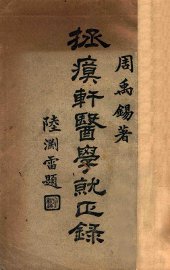 周禹錫著
拯瘼軒醫學就正錄
陸淵雷題